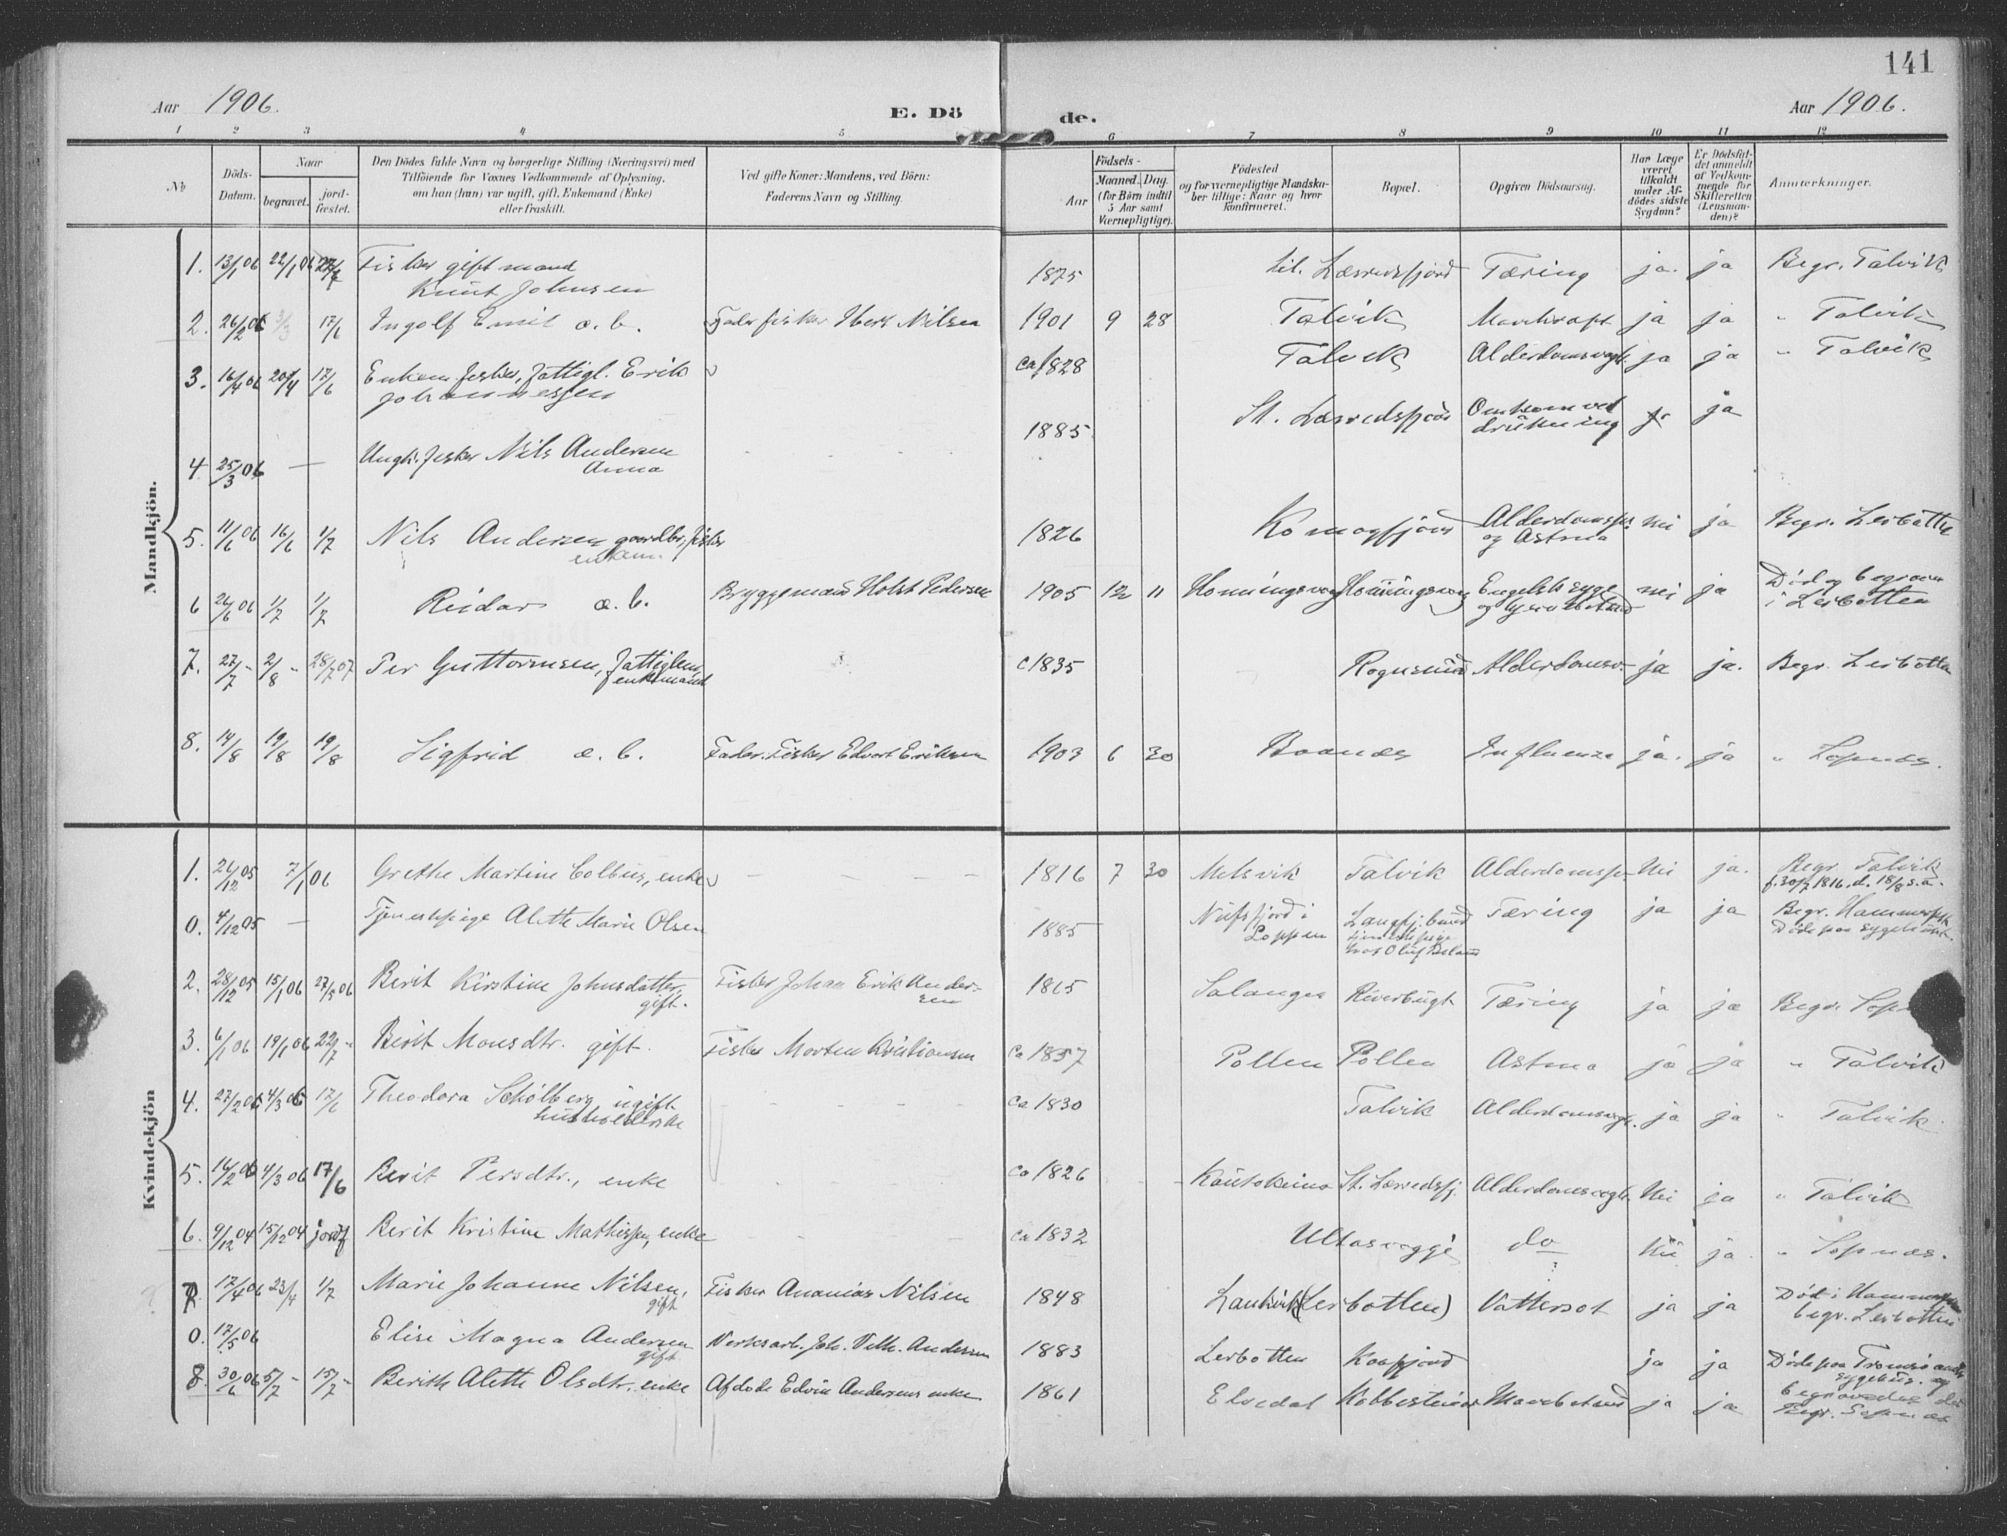 141
Aar 1906. E. Dö de. Aar 1906.
1 2 3 4 5 6 7 8 9 10 11 12
No
Döds-Datum.
Naar
begravet.
jord-fæstet.
Den Dödes fulde Navn og borgerlige Stilling (Næringsvei) med
Tilföiende for Voxnes Vedkommende af Oplysning,
om han (hun) var ugift, gift, Enkemand (Enke)
eller fraskilt.
Ved gifte Koner: Mandens, ved Börn:
Faderens Navn og Stilling.
Födsels-
Aar
Maaned. Dag.
(for Börn indtil
5 Aar samt
Værnepligtige).
Födested
og for værnepligtige Mandska-
ber tillige: Naar og hvor
konfirmeret.
Bopæl.
Opgiven Dödsaarsag.
Har Læge
været
tilkaldt
under Af-
dödes sidste
Sygdom?
Er Dödsfal-
det anmeldt
af Vedkom-
mende for
Skifteretten
(Lensman-
den)?
Anmærkninger.
Mandkjön.
1. 13/1 06 22/1 06 Fisker gift mand 1875 Lil. Læsredsfjord Tæring ja. ja Begr. Talvik
Knut Johnsen
2. 26/2 06 3/3 17/6 Ingolf Emil æ. b. Fader fisker Nilsen 1901 9 28 Talvik ja ja " Talvik
3. 16/4 06 20/4 17/6 Enkem. fisker, fattigl. Erik ca 1828 Talvik Alderdomsvagh. ja ja " Talvik
Johannessen
4 25/3 06 — Ungk. fisker Nils Andersen 1885 St. Læsredsfjord Omkom ved ja
Anna drukning
5. 11/6 06 16/6 1/7 Nils Andersen gaardbr. fisker 1826 Komagfjord Alderdomssv. nei ja Begr. Lerbotten
enkem. og Astma
6 26/6 06 1/7 1/7 Reidar æ. b. Bryggemand Holst Pedersen 1905 12 11 Honningsvog Honningsvog Engelsk syge nei ja Död og begraven
i Lerbotten
7. 27/7 - 2/8 - 28/7 07 Per Guttormsen, fattiglem, c 1835 Rognsund Alderdomsv. ja ja. Begr. Lerbotten
enkemand
8. 14/8 19/8 19/8 Sigfrid æ. b. Fader: Fisker Edvart Eriksen 1903 6 30 Baanæs Influenza ja. ja " Lopnæs.
Kvindekjön
1. 26/12 05 7/1 06 Grethe Martine Colbus, enke 1816 7 30 Melsvik Talvik Alderdomssv. Nei ja. Begr. Talvik
f. 30/7 1816. d. 18/8 s.a.
0. 4/12 05 — Tjenestepige Alette Marie Olsen 1885 Nufsfjord i Langfj.bund Tæring ja ja Begr. Hammerfest
Loppen tjenestepige Döde paa Sygehuset.
hos Oluf
2. 28/12 05 15/1 06 27/5 06 Berit Kirstine Johnsdatter, Fisker Johan Erik Ander- 1865 Salangen Riverbugt Tæring ja ja Begr.
gift. sen
3. 6/1 06 19/1 06 22/7 - Berit Monsdtr. gift. Fisker Morten Kristiansen ca 1857 Pollen Pollen Astma ja ja " Talvik
4. 27/2 06 4/3 06 17/6 Theodora Schölberg, ugift ca 1830 Talvik Alderdomsvagh. ja ja " Talvik.
husholderske
5. 16/2 06 4/3 06 17/6 Berit Persdtr., enke ca 1826 Kautokeino St. Læsredsfj. Alderdomsvagh. Nei ja " Talvik
6. 9/12 04 15/12 04 jordf Berit Kristine Mathissen, enke ca 1832 Ultasvaggi do Nei ja " Sopnæs.
7. 17/4 06 23/4 1/7 Marie Johanne Nilsen, Fisker Ananias Nilsen 1848 (Lerbotten) Vattersot ja ja Död i Hammerfest
gift begr. Lerbotten
0. 17/5 06 Elise Magna Andersen Verksarb. Joh. Vilh. Andersen 1883 Lerbotten Kaafjord ja ja Döde paa Tromsö
gift sygehus. og
begravedes der
8. 30/6 06 5/7 - 15/7 - Berith Alette Olsdtr. enke Afdöde Edvin Andersens enke 1861 Elvedal Mavebetænd ja ja Begr. Sopnæs